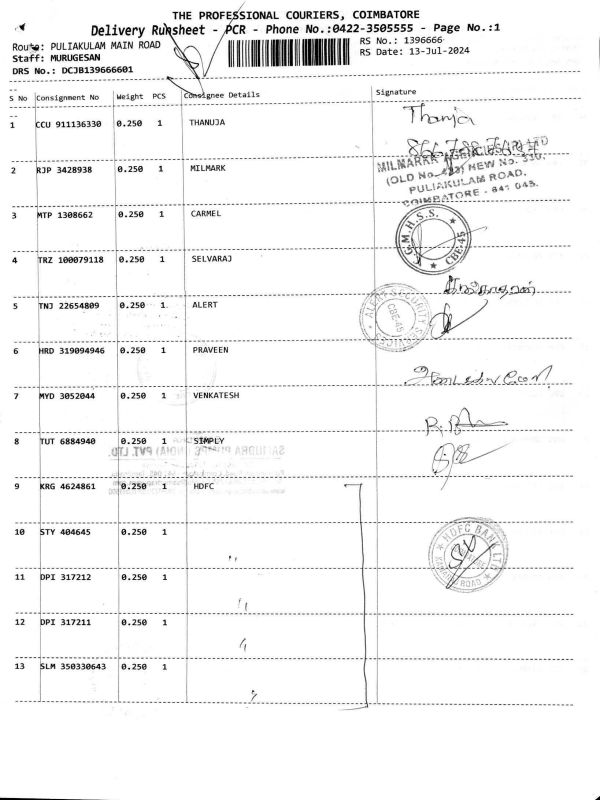 THE PROFESSIONAL COURIERS, COIMBATORE
Delivery Runsheet - PCR - Phone No.:0422-3505555 - Page No.:1
Route: PULIAKULAM MAIN ROAD
RS No.: 1396666
Staff: MURUGESAN
RS Date: 13-Jul-2024
DRS No.: DCJB139666601
S No Consignment No Weight PCS Consignee Details Signature
1 CCU 911136330 0.250 1 THANUJA Thanja
2 RJP 3428938 0.250 1 MILMARK
(OLD No. NEW No. 330,
PULIAKULAM ROAD,
COIMBATORE - 641 045.
3 MTP 1308662 0.250 1 CARMEL
G.M.H.S.S. CBE-45
4 TRZ 100079118 0.250 1 SELVARAJ
5 TNJ 22654809 0.250 1 ALERT
ALERT SECURITY SERVICES CBE-45
6 HRD 319094946 0.250 1 PRAVEEN
7 MYD 3052044 0.250 1 VENKATESH
8 TUT 6884940 0.250 1 SIMPLY
(INDIA) PVT. LTD.
9 KRG 4624861 0.250 1 HDFC
10 STY 404645 0.250 1 "
HDFC BANK LTD ROAD
11 DPI 317212 0.250 1 "
12 DPI 317211 0.250 1 "
13 SLM 350330643 0.250 1 "